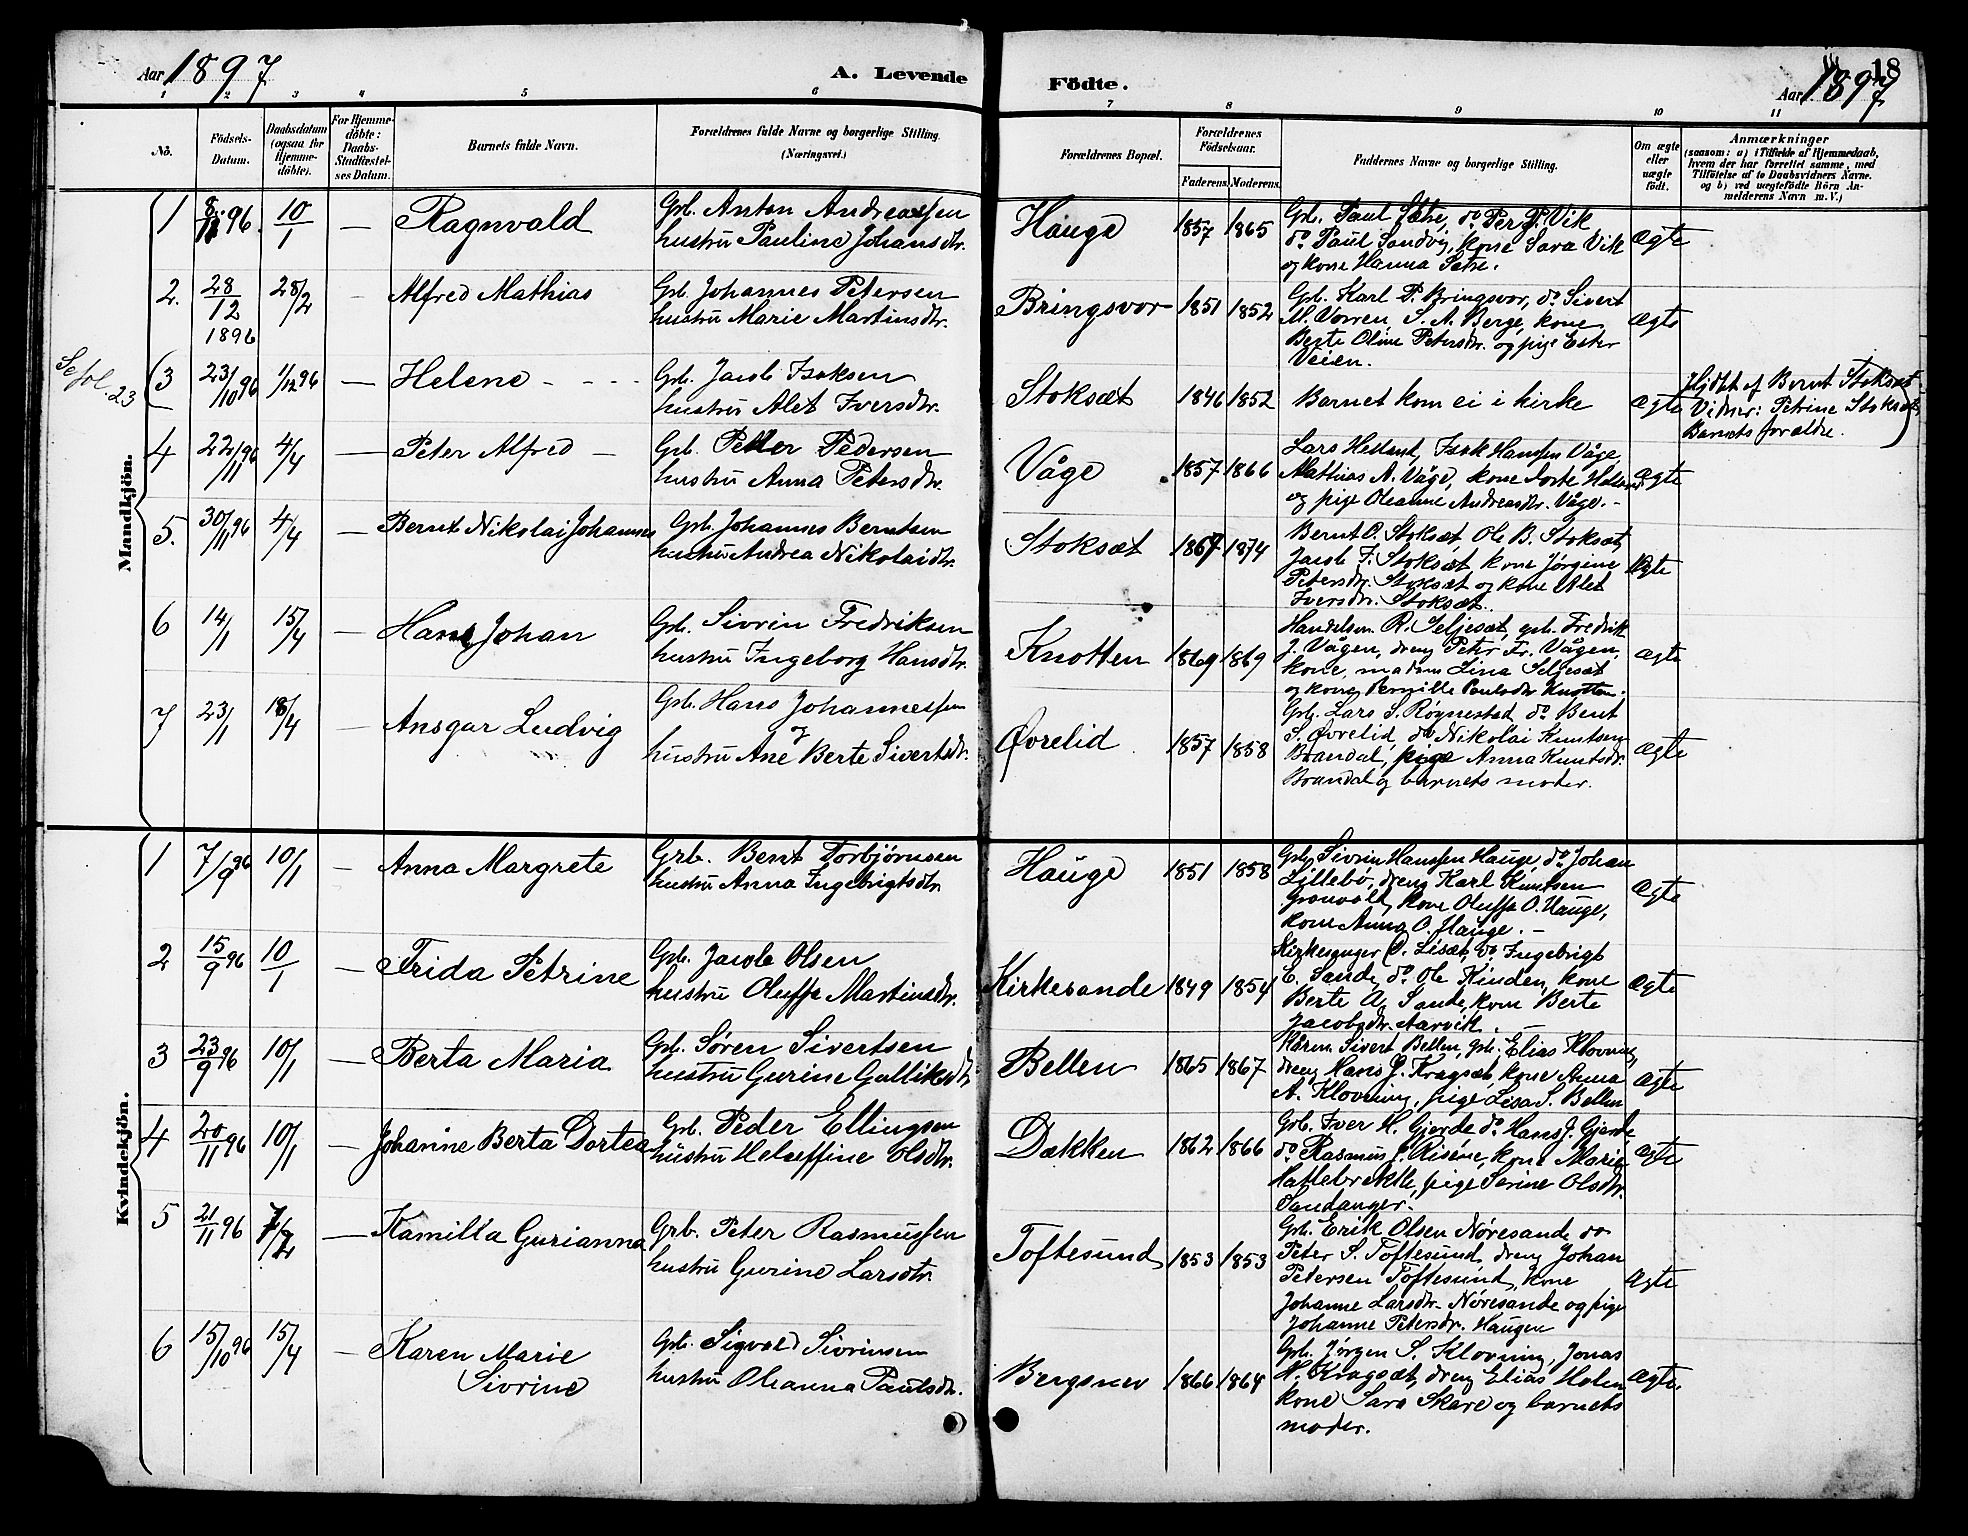 Aar 1897
A. Levende
Födte.
18
Aar 1897
1 2 3 4 5 6 7 8 9 10 11
No.
Födsels-Datum.
Daabsdatum (ogsaa for Hjemme-döbte).
For Hjemme-döbte: Daabs-Stadfæstel-ses Datum.
Barnets fulde Navn.
Forældrenes fulde Navne og borgerlige Stilling.
(Næringsvei.)
Forældrenes Bopæl.
Forældrenes Födselsaar.
Faderens. Moderens.
Faddernes Navne og borgerlige Stilling.
Om ægte eller uægte födt.
Anmærkninger
(saasom: a) i Tilfælde af Hjemmedaab,
hvem der har forrettet samme, med
Tilföielse af to Daabsvidners Navne.
og b) ved uægtefödte Börn An-
melderens Navn m.V.)
Mandkjön.
1 8/11 96. 10/1 — Ragnvald
Grb. Anton Andreassen
hustru Pauline Johansdtr.
Hauge 1857 1865
Grb. Paul Sætre, do Per P. Vik
do Paul Sandvig, kone Sara Vik
og kone Hanna Sætre.
ægte
2. 28/12 1896 28/2 — Alfred Mathias
Grb. Johannes Petersen
hustru Marie Martinsdtr.
Bringsvor 1851 1852
Grb. Karl P. Bringsvor, do Sivert
M. Vorren, S. A. Berge, kone
Berte Oline Petersdtr. og pige Ester
Veien.
ægte
Se fol. 23
3 23/10 96 1/12 96 — Helene - - - -
Grb. Jacob Isaksen
hustru Alet Iversdtr.
Stoksæt 1846 1852
Barnet kom ei i kirke
ægte
Hjdbt af Bernt Stoksæt
Vidner: Petrine Stoksæt
Barnets forældre.
4 22/11 96 4/4 — Peter Alfred —
Grb. Petter Pedersen
hustru Anna Petersdtr.
Våge 1857 1866
Lars Helland, Isak Hansen Våge,
Mathias A. Våge, kone Dorte Helland
og pige Oleanne Andreasdtr. Våge. -
ægte
5. 30/11 96 4/4 — Bernt Nikolai Johannes
Grb. Johannes Berntsen
hustru Andrea Nikolaidtr.
Stoksæt 1867 1874
Bernt O. Stoksæt, Ole B. Stoksæt,
Jacob I. Stoksæt, kone Jørgine
Petersdtr. Stoksæt og kone Alet
Iversdtr. Stoksæt.
ægte
6 14/1 15/4 — Hans Johan
Grb. Sivrin Fredriksen
hustru Ingeborg Hansdtr.
Knotten 1869 1869
Handelsm. R. Seljesæt, grb. Fredrik
J. Vågen, dreng Petr Fr. Vågen,
kone, madam Lina Seljesæt
og kone Pernille Paulsdtr Knotten.
ægte
7 23/1 18/4 — Ansgar Ludvig
Grb. Hans Johannessen
og
hustru Ane Berte Sivertsdtr.
Øvrelid 1857 1858
Grb. Lars S. Røgnestad do Bent
S. Øvrelid, do Nikolai Knutsen
Brandal, pige Anna Knutsdtr.
Brandal og barnets moder.
ægte
Kvindekjön.
1 7/9 96 10/1 — Anna Margrete
Grb. Bent Torbjørnsen
hustru Anna Ingebrigtsdtr.
Hauge 1851 1858
Grb. Sivrin Hanssen Hauge, do Johan
Lillebø, dreng Karl Knutsen
kone Oluffa O. Hauge,
kone Anna O. Hauge. -
ægte
2 15/9 96 10/1 — Frida Petrine
Grb. Jacob Olsen
hustru Oluffa Martinsdtr.
Kirkesande 1849 1854
Kirkesanger O. Lisæt, do Ingebrigt
E. Sande, do Ole Kinden, kone
Berte A. Sande, kone Berte
Jacobsdtr. Aarvik. —
ægte
3 23/9 96 10/1 — Berta Maria
Grb. Søren Sivertsen
hustru Gurine Gulliksdtr
Bellen 1865 1867
Sivert Bellen, grb. Elias Klovning,
dreng Hans J. Kragsæt, kone Anna
A. Klovning, pige Lisa S. Bellen
ægte
4 20/11 96 10/1 — Johanne Berta Dortea
Grb. Peder Ellingsen
hustru Helseffine Olsdtr.
Dækken 1862 1866
Grb. Iver H. Gjerde do Hans J. Gjerde
do Rasmus J. Risöne, kone Marie
Hatlebrekke, pige Serine Olsdtr.
Sandanger.
ægte
5 21/11 96 7/2 — Kamilla Gurianna
Grb. Peter Rasmussen
hustru Gurine Larsdtr.
Toftesund 1853 1853
Grb. Erik Olsen Nøresande do
Peter S. Toftesund, dreng Johan
Petersen Toftesund, kone
Johanne Larsdtr. Nøresande og pige
Johanne Petersdtr. Haugen
ægte
6 15/10 96 15/4 — Karen Marie
Sivrine
Grb. Sigvald Sivrinsen
hustru Oleanna Paulsdtr.
Bergsnev 1866 1864
Grb. Jørgen S. Klovning, Jonas
H. Kragsæt, dreng Elias Holen
kone Sara Skare og barnets
moder.
ægte.